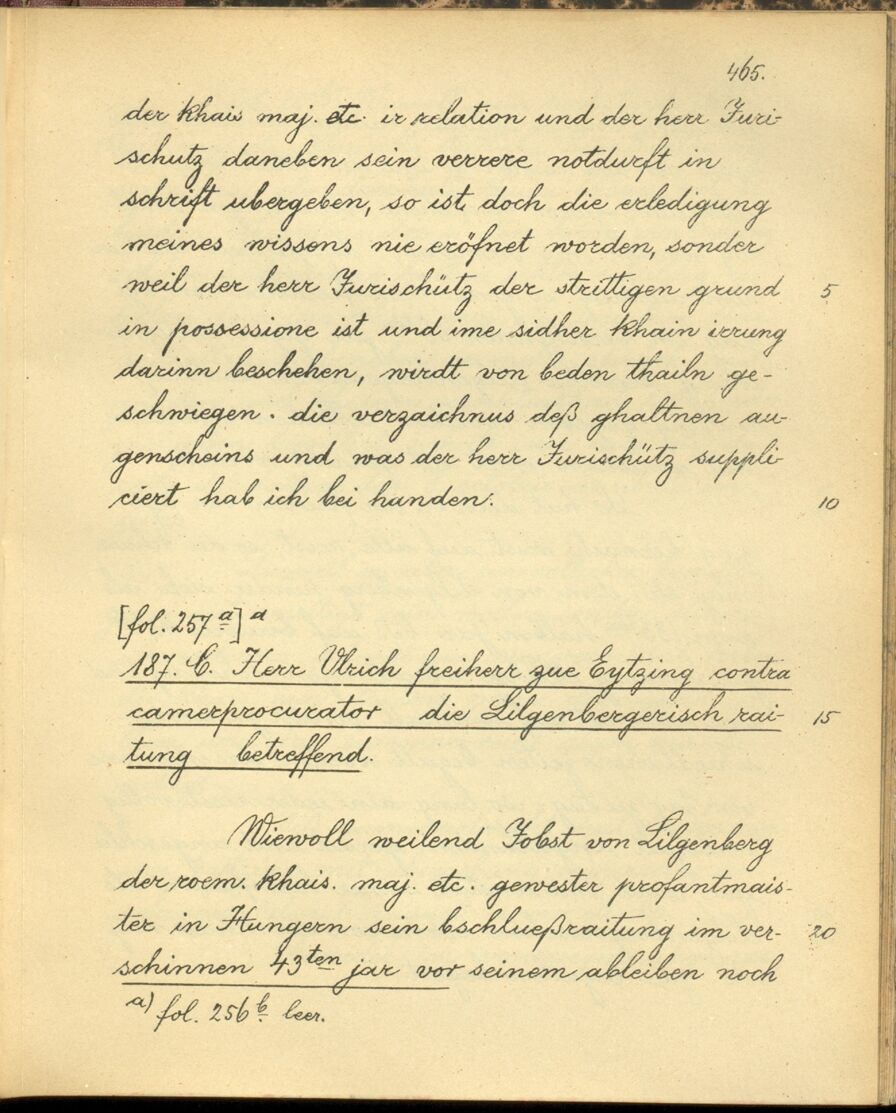 465.
der khais maj. etc. ir relation und der herr Juri-
schutz daneben sein verrere notdurft in
schrift ubergeben, so ist doch die erledigung
meines wissens nie eröfnet worden, sonder
weil der herr Jurischütz der strittigen grund 5
in possessione ist und ime sidher khain irrung
darinn beschehen, wirdt von beden thailn ge-
schwiegen. die verzaichnus deß ghaltnen au-
genscheins und was der herr Jurischütz suppli-
ciert hab ich bei handen. 10
[fol. 257 a] a
187. C. Herr Vlrich freiherr zue Eytzing contra
camerprocurator die Lilgenbergerisch rai- 15
tung betreffend.
Wiewoll weilend Jobst von Lilgenberg
der roem. khais. maj. etc. gewester profantmais-
ter in Hungern sein bschlueßraitung im ver- 20
schinnen 43ten jar vor seinem ableiben noch
a) fol. 256 b leer.